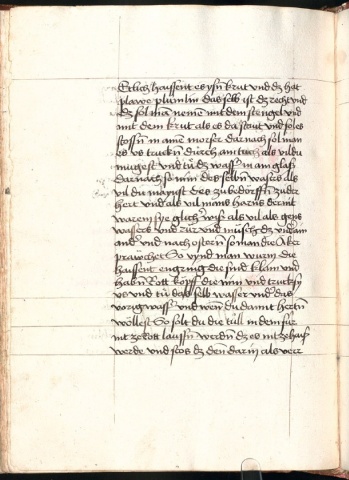 Etlich haissent es ysn krut vnd dz hat
plawe plumlin das selb ist dz recht vnd
dz sol man nemen mit dem stengel vnd
mit dem krut als es da staut vnd sol es
stossen in aim morser darnach sol man
es us trucken durch ain tuch als vil du
mugest vnd tů dz wasser in ain glaß
darnach so nim des selben wasers als
vil du mainst des zu bedorffen zu der
hert vnd als vil mans harns der mit
warem sye glich wiß als vil als gens
wassers vnd rür vnd misch dz vnder ain
ander vnd nach ostern so man die aker
prawchet So vind man wurm die
haissent engring die sind klain vnd
habent Rott köpff die nim vnd truck sy
us vnd tů das selb wasser vnder das
vorig wasser vnd wen du da mit herten
wöllest So solt du die tüll in dem für
nit ze rott laussen werden dz es nit ze haiß
werde vnd stos dz den dar in als verr